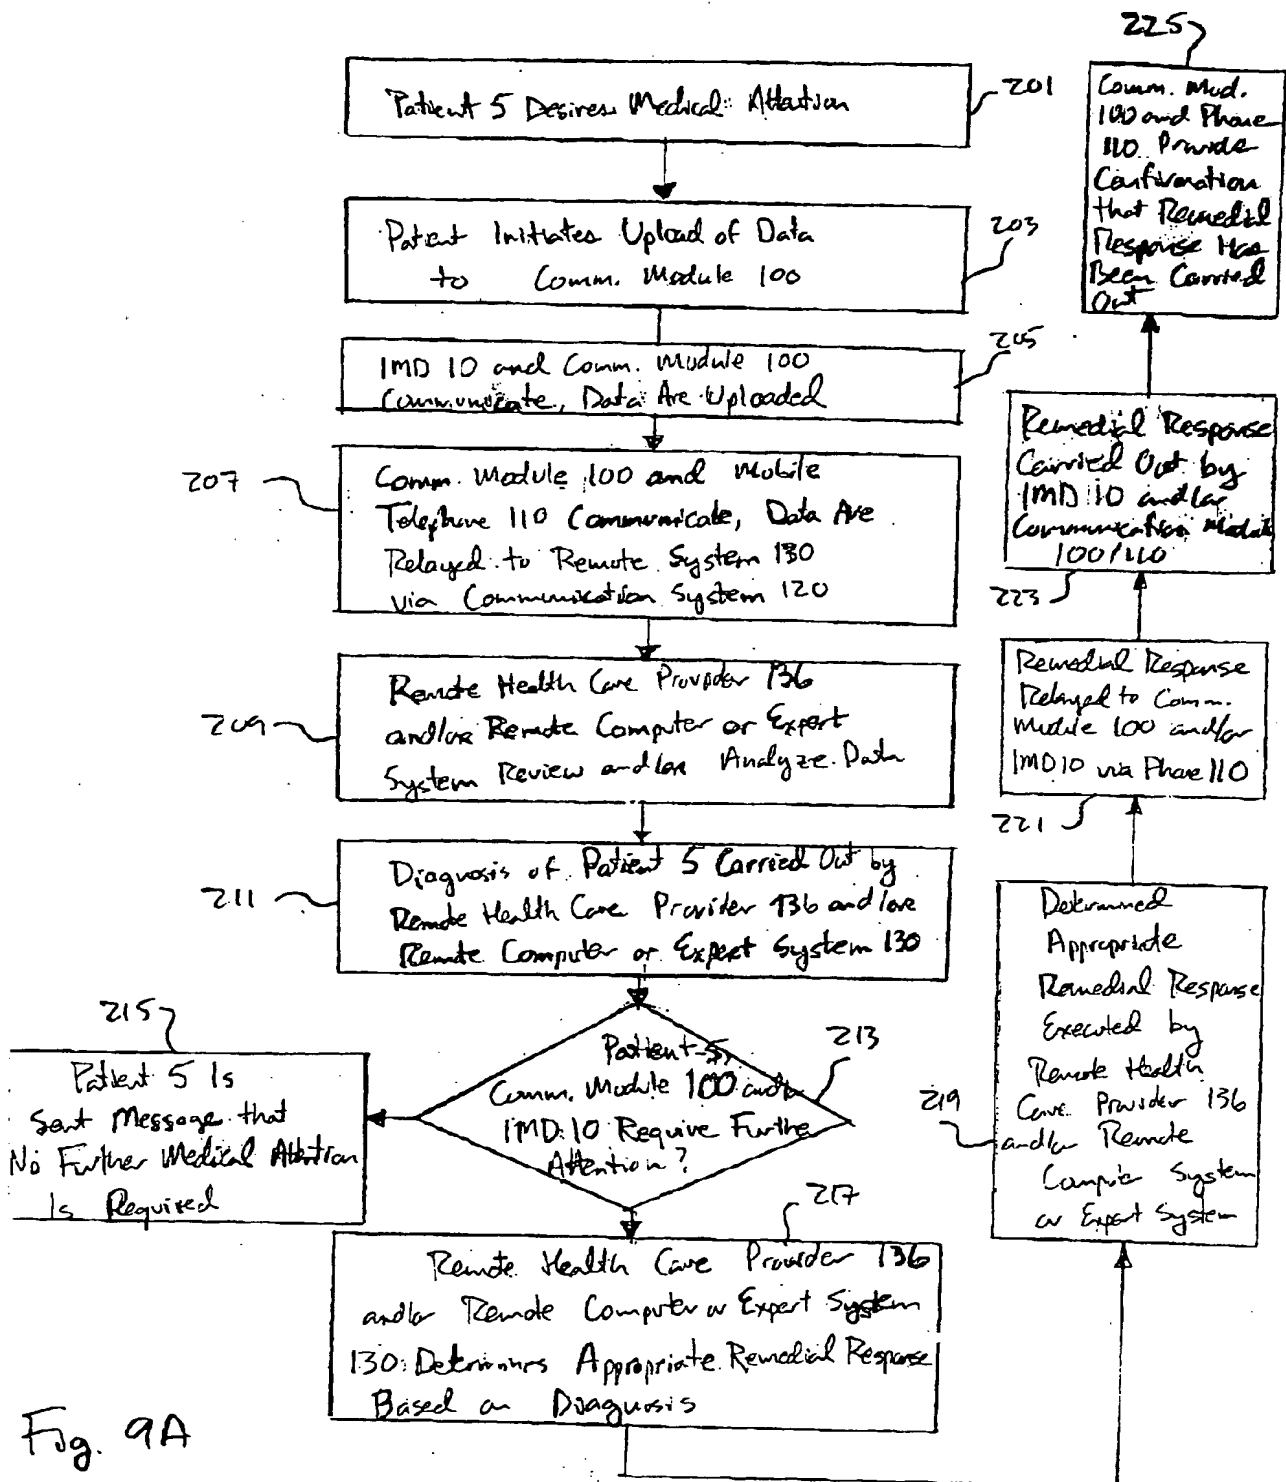 201
Patient 5 Desires Medical Attention
203
Patient Initiates Upload of Data
to Comm. Module 100
205
IMD 10 and Comm. Module 100
Communicate, Data Are Uploaded
207
Comm. Module 100 and Mobile
Telephone 110 Communicate, Data Are
Relayed to Remote System 130
via Communication System 120
209
Remote Health Care Provider 136
and/or Remote Computer or Expert
System Review and/or Analyze Data
211
Diagnosis of Patient 5 Carried Out by
Remote Health Care Provider 136 and/or
Remote Computer or Expert System 130
213
Patient 5,
Comm. Module 100 and/or
IMD 10 Require Further
Attention?
215
Patient 5 Is
Sent Message that
No Further Medical Attention
Is Required
217
Remote Health Care Provider 136
and/or Remote Computer or Expert System
130 Determines Appropriate Remedial Response
Based on Diagnosis
219
Determined
Appropriate
Remedial Response
Executed by
Remote Health
Care Provider 136
and/or Remote
Computer System
or Expert System
221
Remedial Response
Relayed to Comm.
Module 100 and/or
IMD 10 via Phone 110
223
Remedial Response
Carried Out by
IMD 10 and/or
Communication Module
100/110
225
Comm. Mod.
100 and Phone
110 Provide
Confirmation
that Remedial
Response Has
Been Carried
Out
Fig. 9A